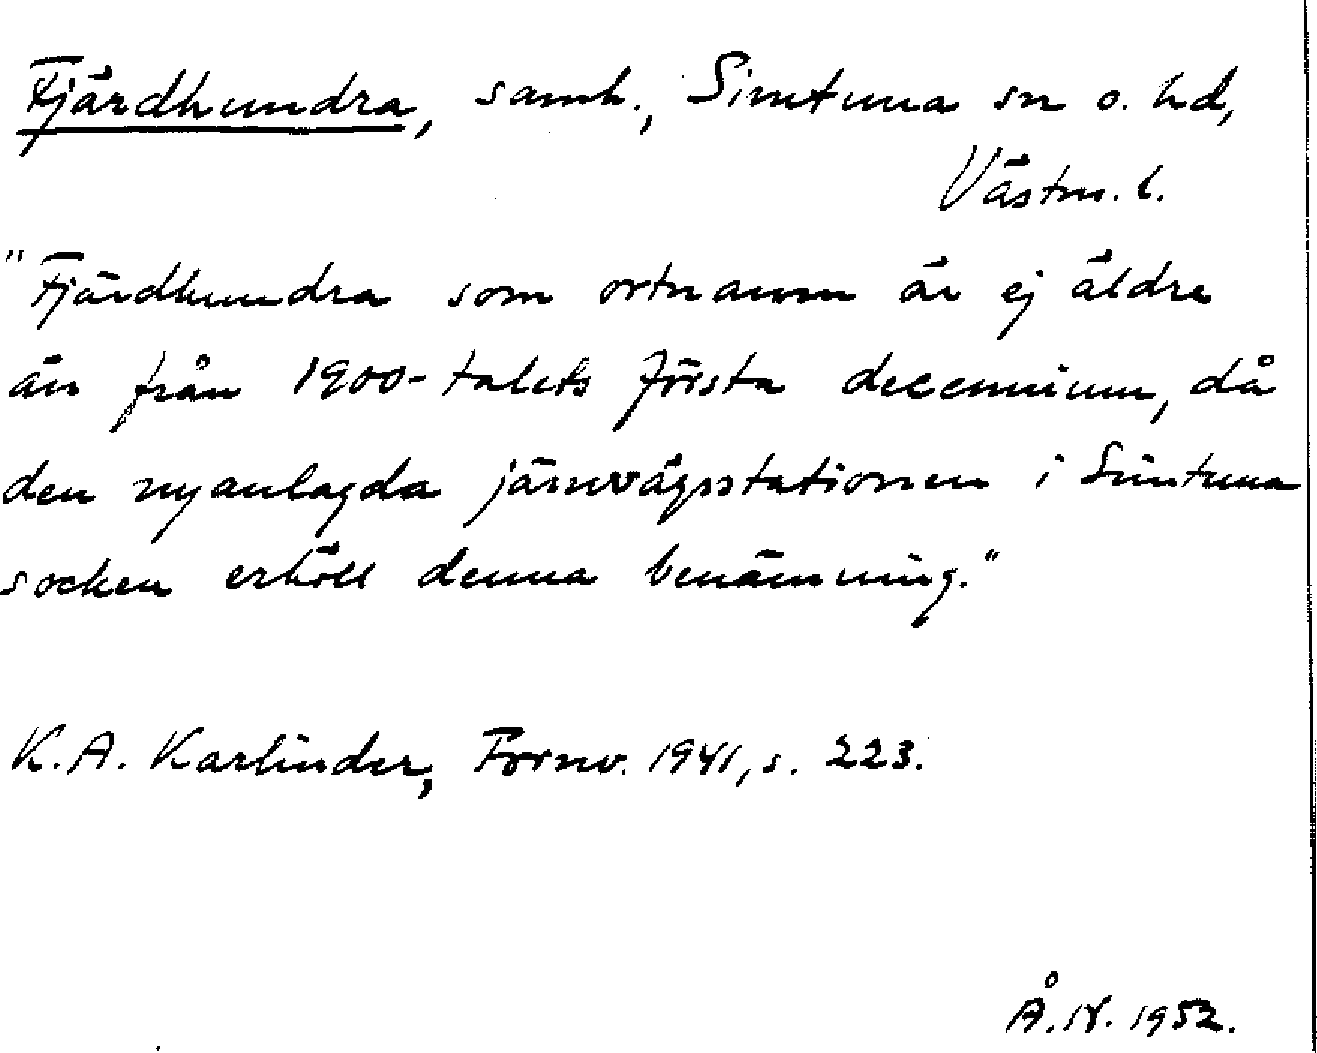 Fjärdhundra, samh., Simtuna sn o. hd,
Västm. l.
"Fjärdhundra som ortnamn är ej äldre
än från 1900-talets första decennium, då
den nyanlagda järnvägsstationen i Simtuna
socken erhöll denna benämning."
K.A. Karlinder, Fornv. 1941, s. 223.
Å.N. 1952.